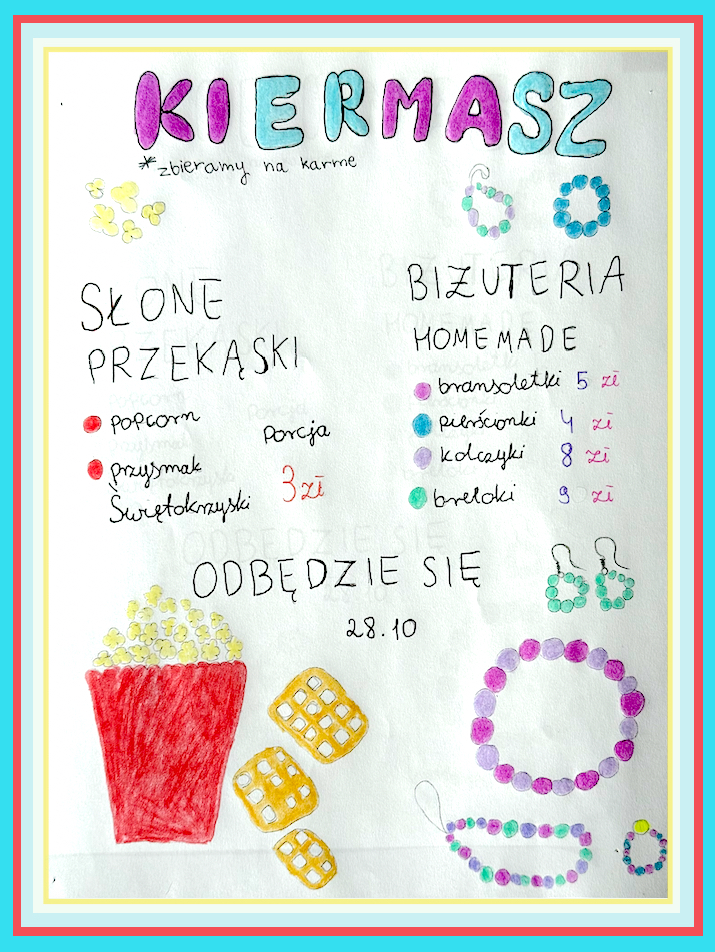 KIERMASZ
*zbieramy na karmę
SŁONE
PRZEKĄSKI
popcorn
przysmak
Świętokrzyski
porcja
3 zł
BIŻUTERIA
HOMEMADE
bransoletki 5 zł
pierścionki 4 zł
kolczyki 8 zł
breloki 9 zł
ODBĘDZIE SIĘ
28.10